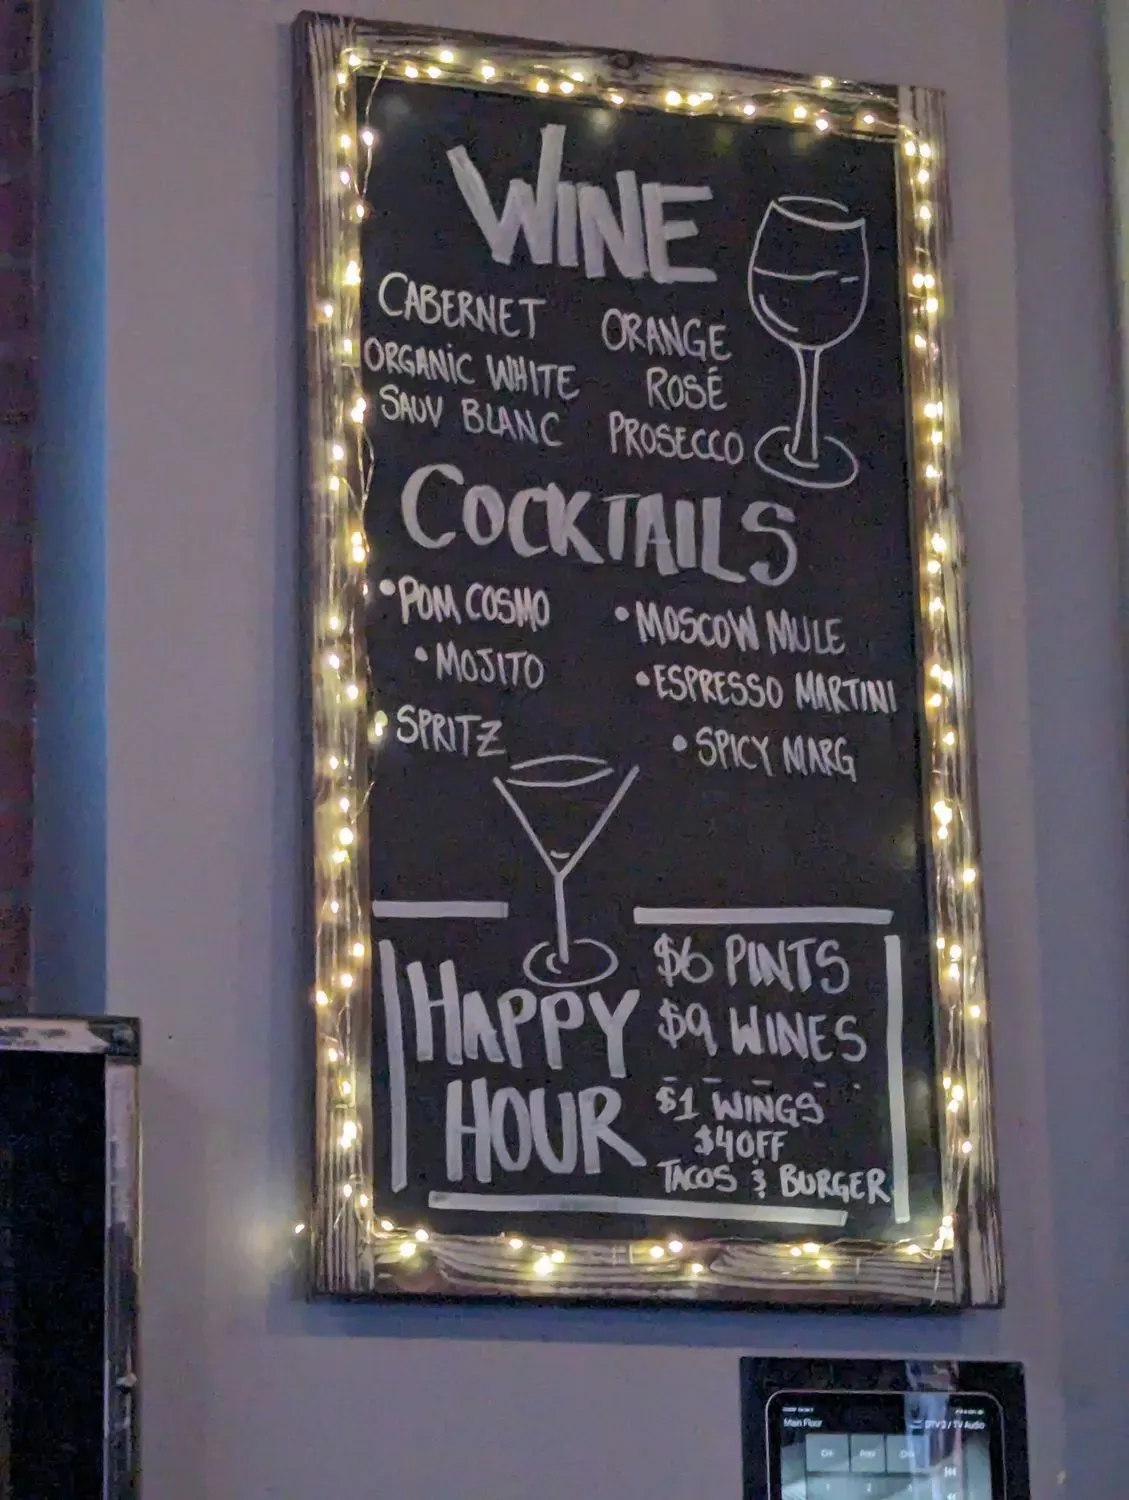 WINE
CABERNET
ORGANIC WHITE
SAUV BLANC
ORANGE
ROSÉ
PROSECCO
COCKTAILS
• POM COSMO
• MOJITO
• SPRITZ
• MOSCOW MULE
• ESPRESSO MARTINI
• SPICY MARG
HAPPY
HOUR
$6 PINTS
$9 WINES
$1 WINGS
$4 OFF
TACOS & BURGER
Main Floor
DTV 3 / TV Audio